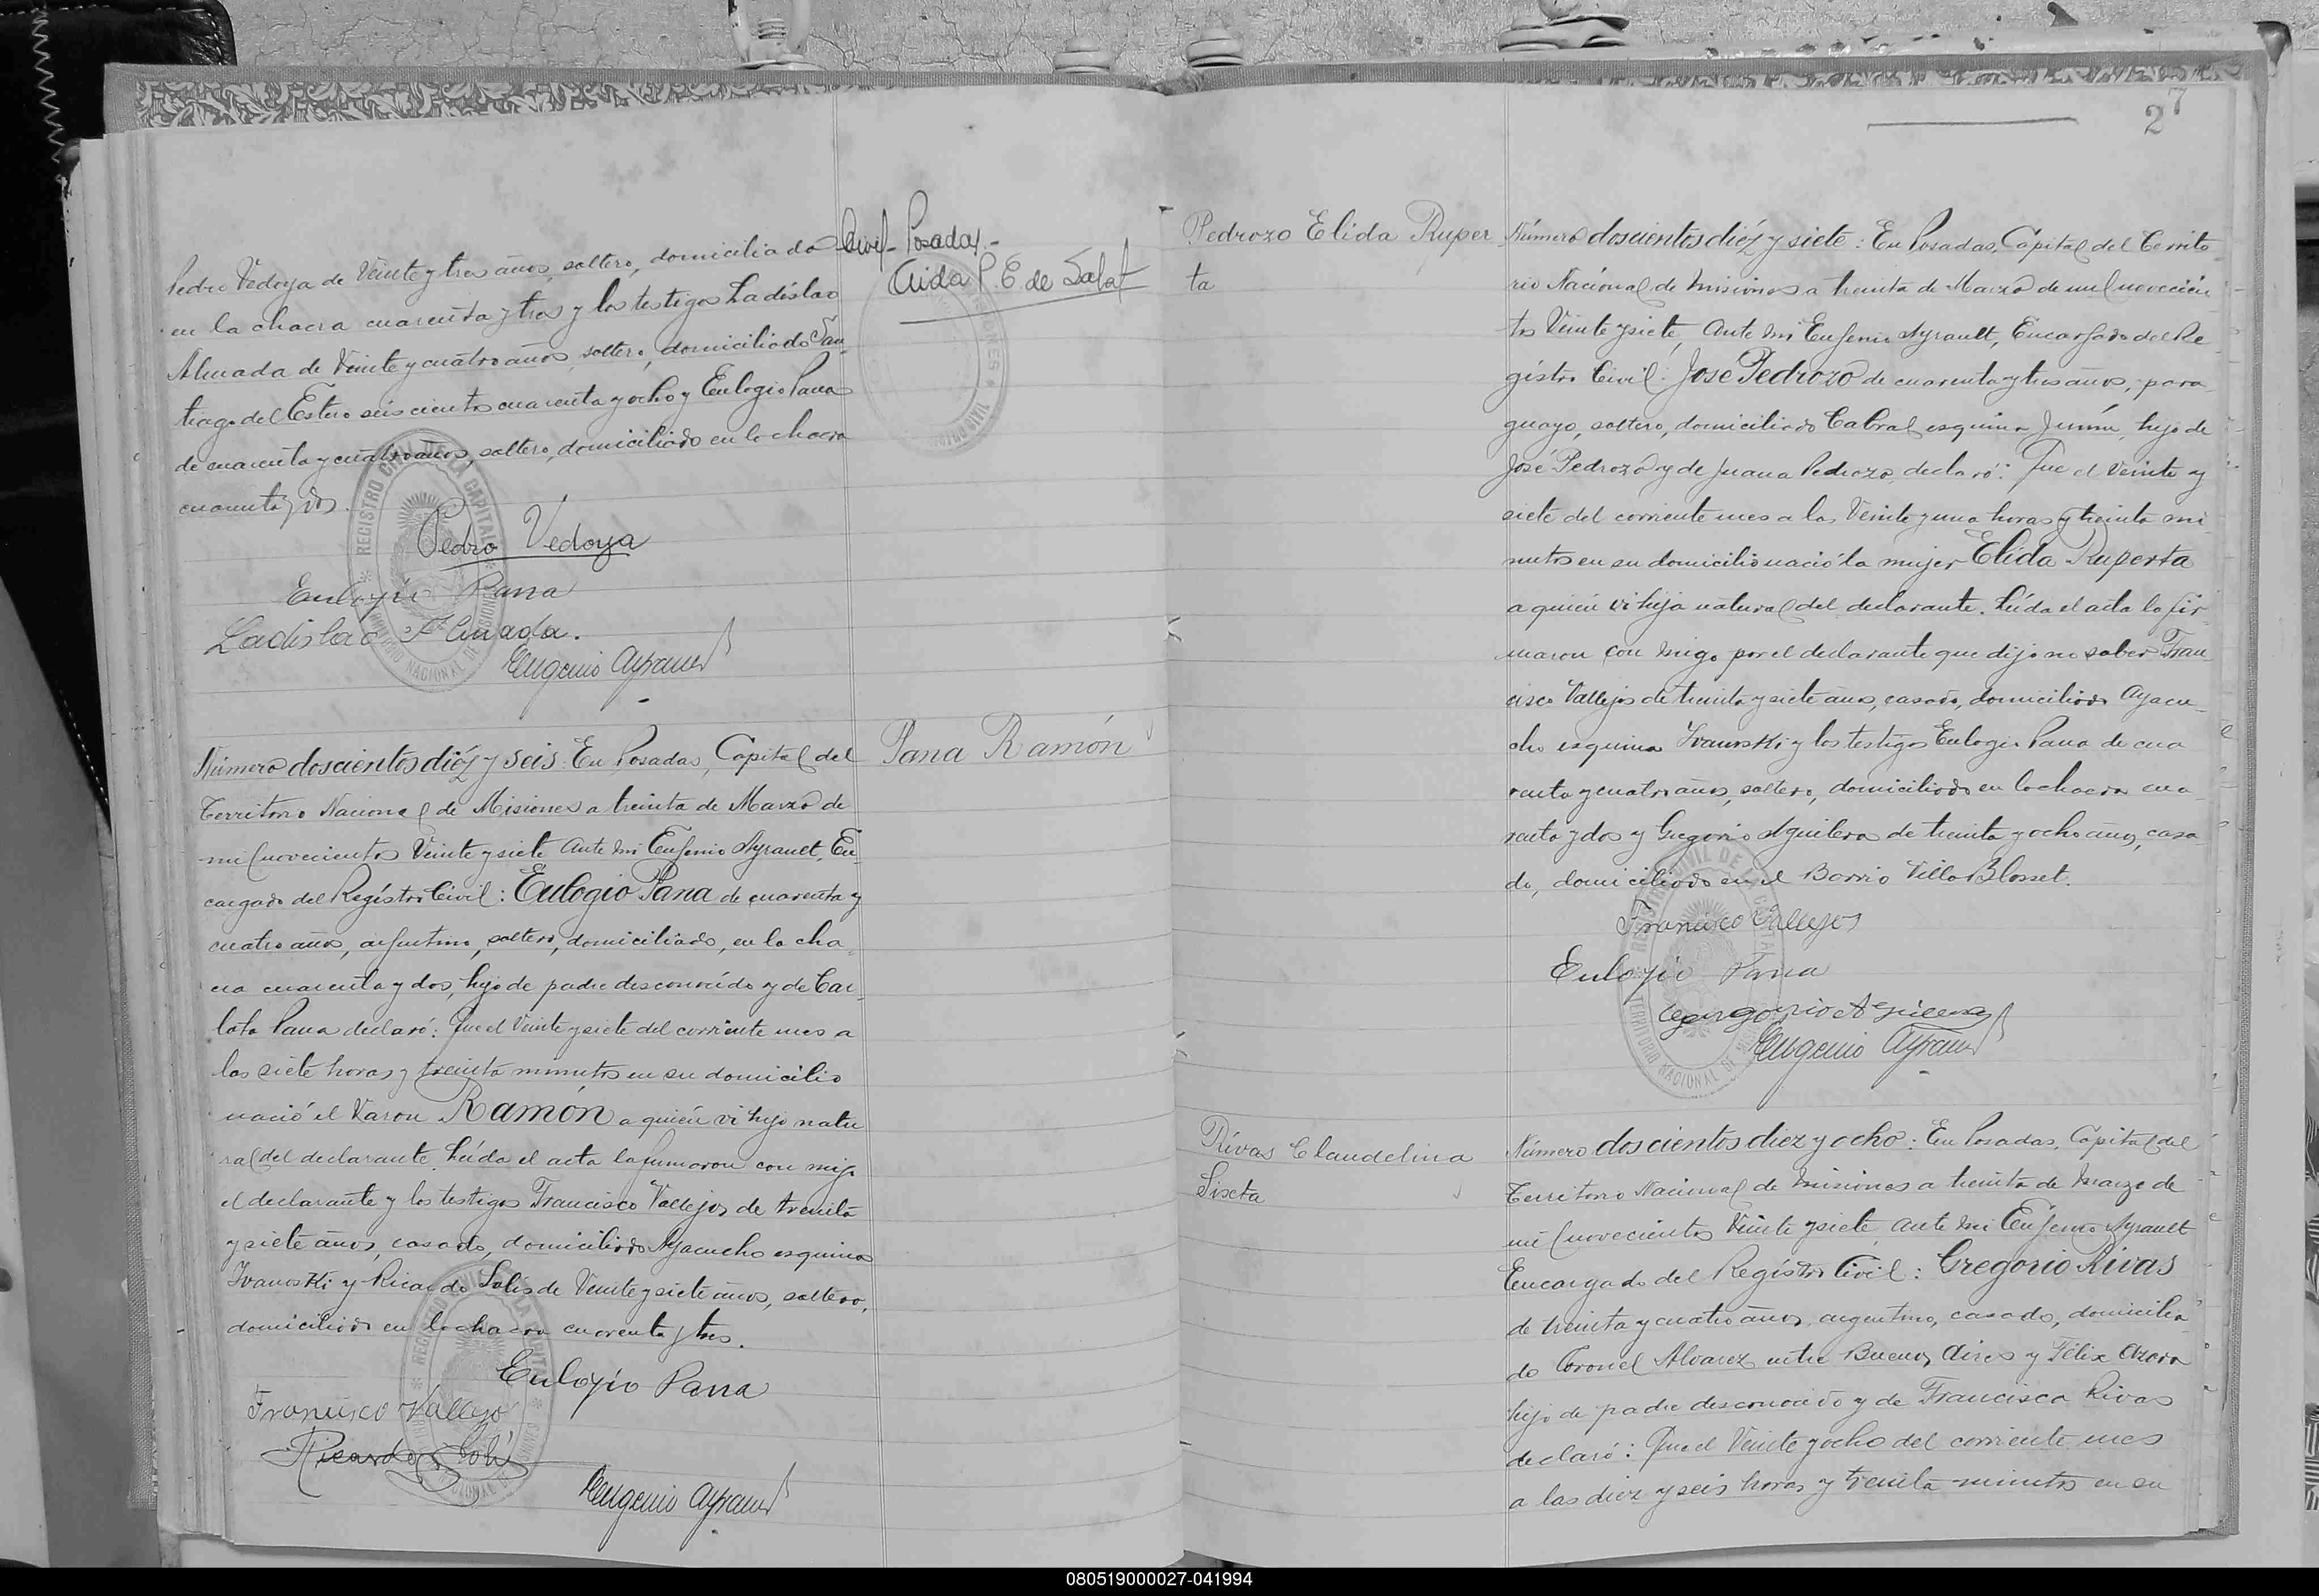 Pedro Vedoya de Veinte y tres años, soltero, domiciliado
en la chacra cuarenta y tres y los testigos Ladislao
Almada de Veinte y cuatro años, soltero, domiciliado San
tiago del Estero seiscientos cuarenta y ocho y Eulogio Pana
de cuarenta y cuatro años, soltero, domiciliado en la chacra
cuarenta y dos.
Pedro Vedoya
Eulogio Pana
Ladislao Almada.
Eugenio Ayrault
REGISTRO CIVIL DE LA CAPITAL
TERRITORIO NACIONAL DE MISIONES
Civil - Posadas.-
Aida P. E de Salat
Número doscientos diéz y seis: En Posadas, Capital del
Territorio Nacional de Misiones a treinta de Marzo de
mil novecientos Veinte y siete Ante mi Eugenio Ayrault, En
cargado del Registro Civil: Eulogio Pana de cuarenta y
cuatro años, argentino, soltero, domiciliado, en la cha
cra cuarenta y dos, hijo de padre desconocido y de Car
lota Pana declaró: Que el Veinte y siete del corriente mes a
las siete horas y treinta minutos en su domicilio
nació el Varon Ramón a quién vi hijo natu
ral del declarante. Leída el acta la firmaron con migo
el declarante y los testigos Francisco Vallejos de treinta
y siete años, casado, domiciliado Ayacucho esquina
Ivanoski y Ricardo Solis de Veinte y siete años, soltero,
domiciliado en la chacra cuarenta y tres.
Eulogio Pana
Francisco Vallejo
Ricardo Solis
Eugenio Ayrault
Pana Ramón
27
Pedrozo Elida Ruper
ta
Número doscientos diéz y siete: En Posadas, Capital del Territo
rio Nacional de Misiones a treinta de Marzo de mil novecien
tos Veinte y siete, Ante mi Eugenio Ayrault, Encargado del Re
gistro Civil: José Pedrozo de cuarenta y tres años, para
guayo, soltero, domiciliado Cabral esquina Junín, hijo de
José Pedrozo y de Juana Pedrozo, declaró: Que el Veinte y
siete del corriente mes a las Veinte y una horas y treinta mi
nutos en su domicilio nació la mujer Elida Ruperta
a quién vi hija natural del declarante. Leída el acta la fir
maron con migo por el declarante que dijo no saber Fran
cisco Vallejos de treinta y siete años, casado, domiciliado Ayacu
cho esquina Ivanoski y los testigos Eulogio Pana de cua
renta y cuatro años, soltero, domiciliado en la chacra cua
renta y dos y Gregorio Aguilera de treinta y ocho años, casa
do, domiciliado en el Barrio Villa Blosset.
Francisco Vallejos
Eulogio Pana
Gregorio Aguilera
Eugenio Ayrault
Rivas Claudelina
Sixta
Número doscientos diez y ocho: En Posadas, Capital del
Territorio Nacional de Misiones a treinta de Marzo de
mil novecientos Veinte y siete, ante mi Eugenio Ayrault
Encargado del Registro Civil: Gregorio Rivas
de treinta y cuatro años, argentino, casado, domicilia
do Coronel Alvarez entre Buenos Aires y Félix Azara
hijo de padre desconocido y de Francisca Rivas
declaró: Que el Veinte y ocho del corriente mes
a las diez y seis horas y treinta minutos en su
080519000027-041994